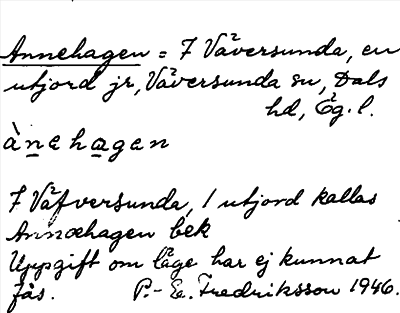 Annehagen = 7 Väversunda, en
utjord jr, Väversunda sn, Dals
hd, Ög. l.
ànehagen
7 Väfversunda, 1 utjord kallas
Annæhagen bek
Uppgift om läge har ej kunnat
fås. P.-E. Fredriksson 1946.